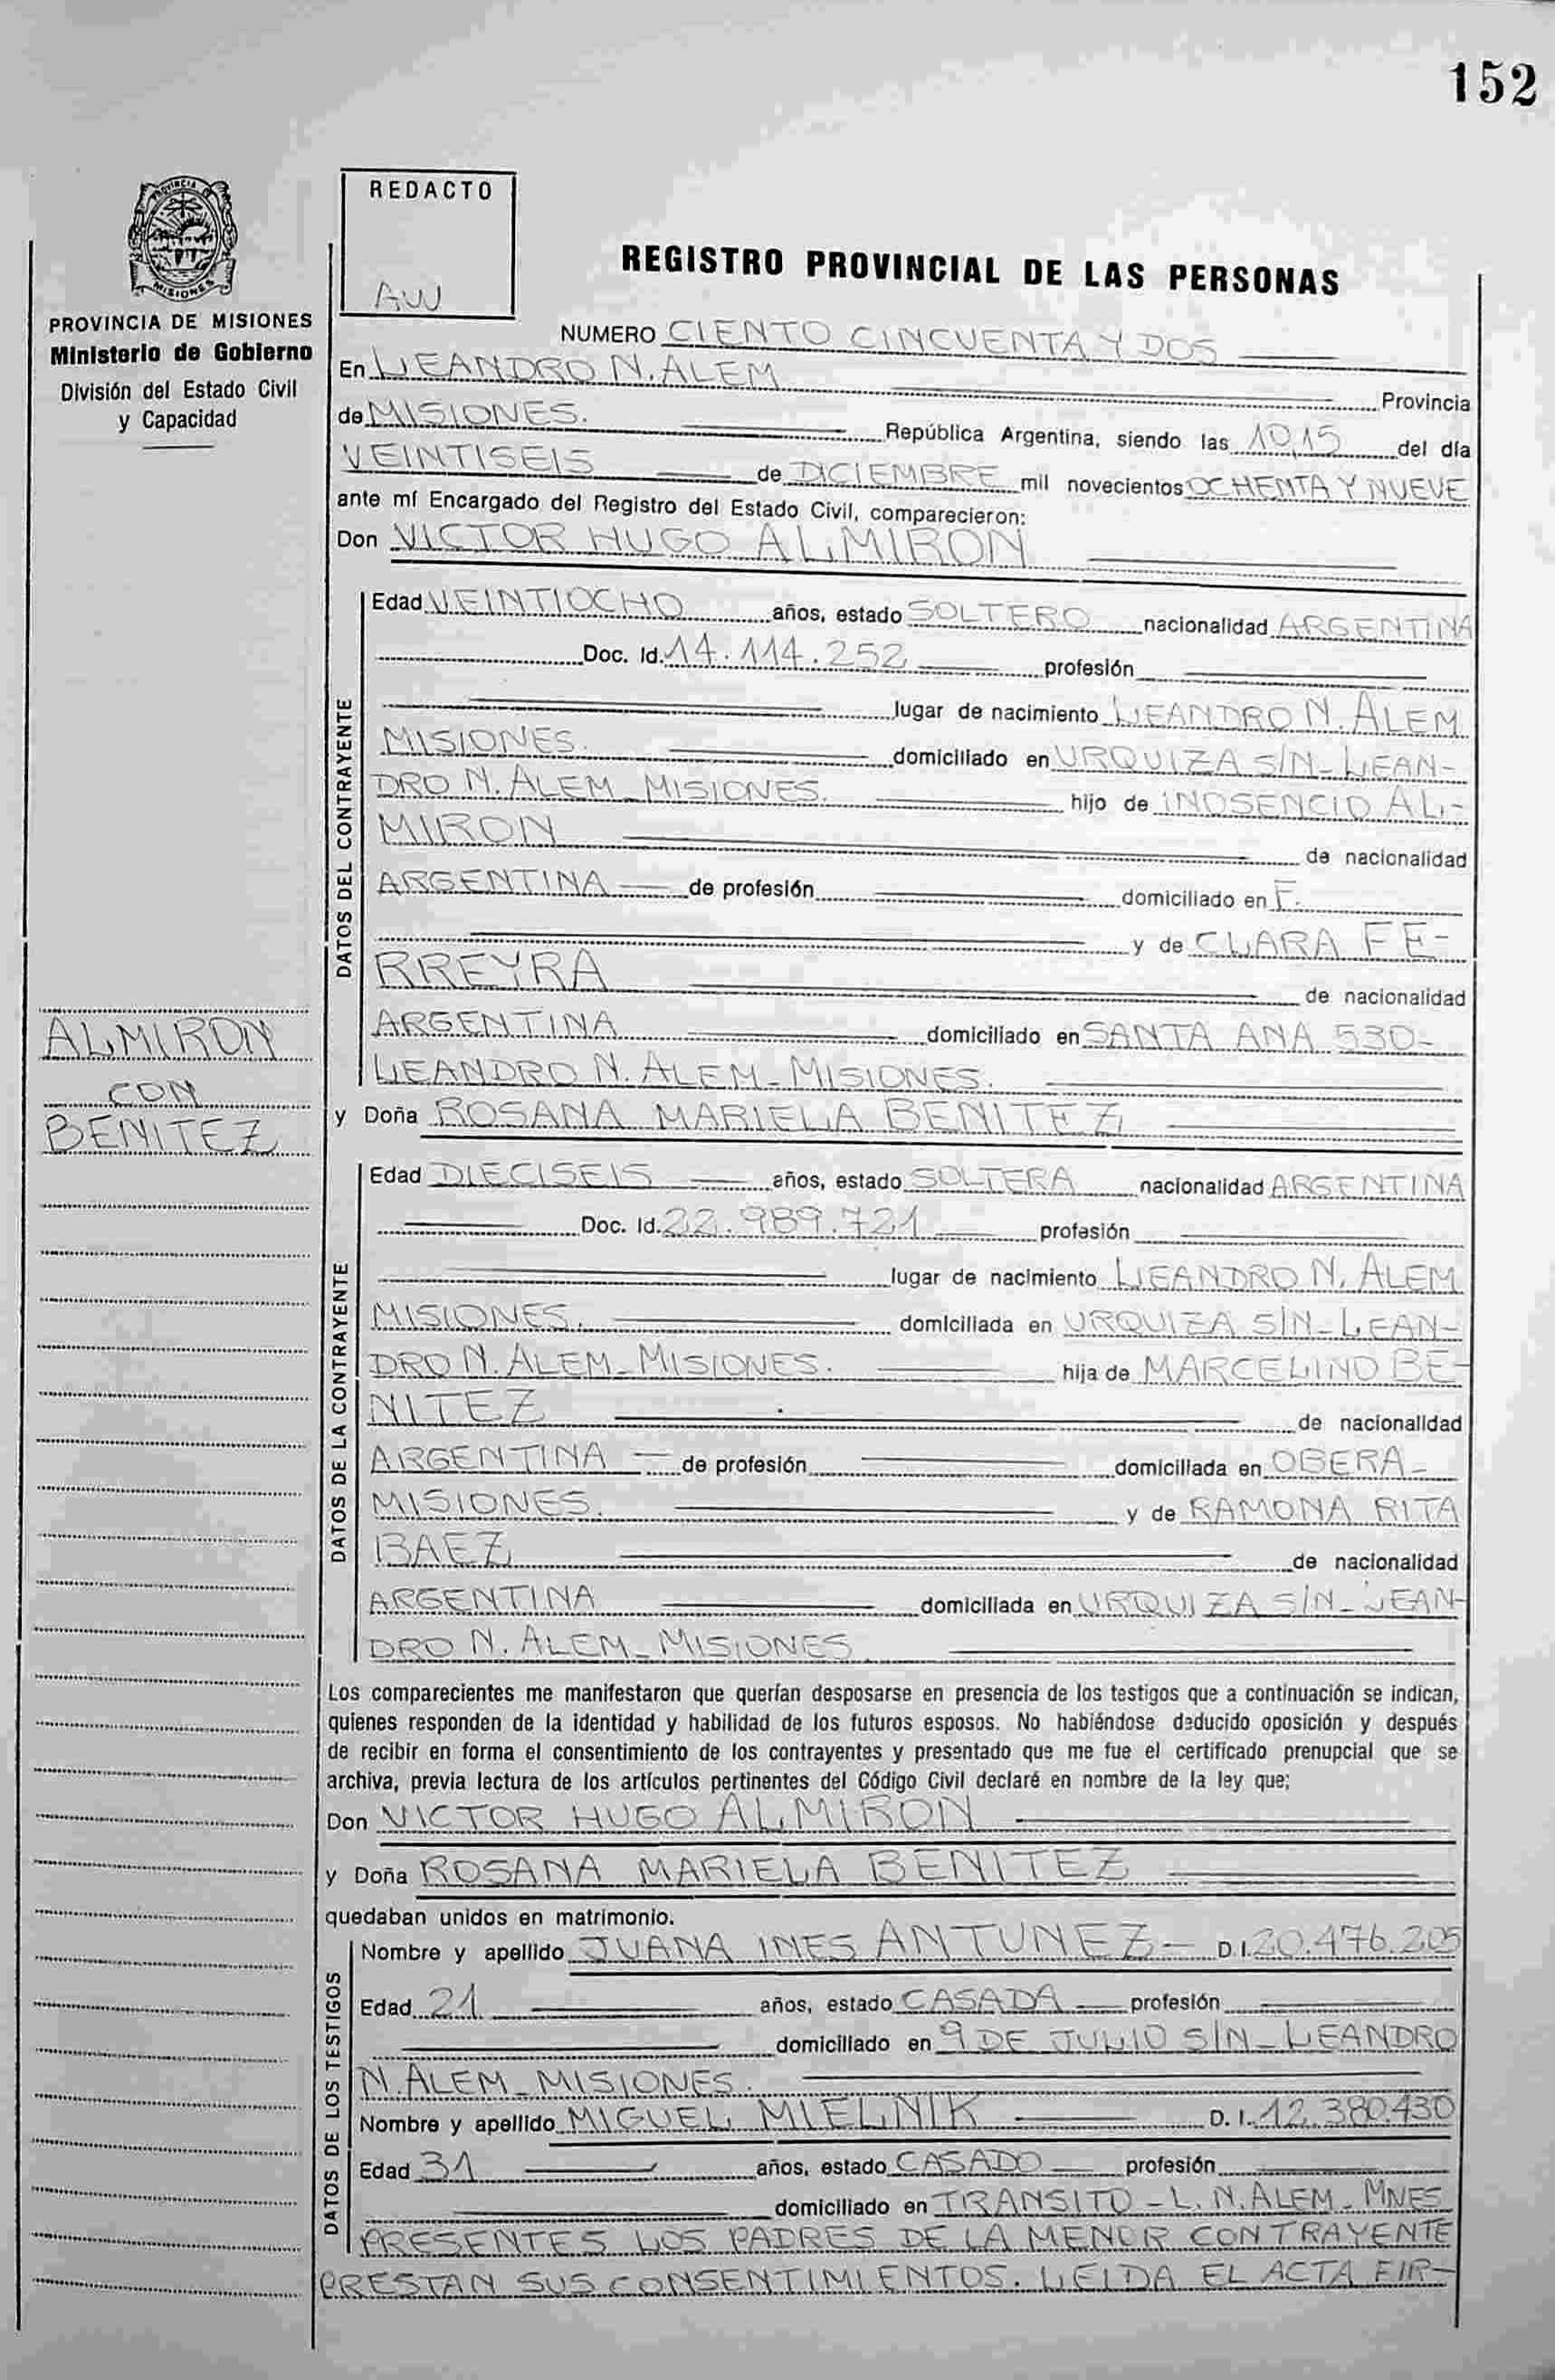 152
PROVINCIA DE MISIONES
PROVINCIA DE MISIONES
Ministerio de Gobierno
División del Estado Civil
y Capacidad
REDACTO
AW
REGISTRO PROVINCIAL DE LAS PERSONAS
NUMERO CIENTO CINCUENTA Y DOS
En LEANDRO N. ALEM Provincia
de MISIONES. República Argentina, siendo las 10,15 del día
VEINTISEIS de DICIEMBRE mil novecientos OCHENTA Y NUEVE
ante mí Encargado del Registro del Estado Civil, comparecieron:
Don VICTOR HUGO ALMIRON
DATOS DEL CONTRAYENTE
Edad VEINTIOCHO años, estado SOLTERO nacionalidad ARGENTINA
Doc. Id. 14.114.252 profesión
lugar de nacimiento LEANDRO N. ALEM
MISIONES. domiciliado en URQUIZA S/N - LEAN-
DRO N. ALEM - MISIONES. hijo de INOSENCIO AL-
MIRON de nacionalidad
ARGENTINA de profesión domiciliado en F.
y de CLARA FE-
RREYRA de nacionalidad
ARGENTINA domiciliado en SANTA ANA 530-
LEANDRO N. ALEM - MISIONES.
ALMIRON
CON
BENITEZ
y Doña ROSANA MARIELA BENITEZ
DATOS DE LA CONTRAYENTE
Edad DIECISEIS años, estado SOLTERA nacionalidad ARGENTINA
Doc. Id. 22.989.721 profesión
lugar de nacimiento LEANDRO N. ALEM
MISIONES. domiciliada en URQUIZA S/N - LEAN-
DRO N. ALEM - MISIONES. hija de MARCELINO BE-
NITEZ de nacionalidad
ARGENTINA de profesión domiciliada en OBERA -
MISIONES. y de RAMONA RITA
BAEZ de nacionalidad
ARGENTINA domiciliada en URQUIZA S/N - LEAN-
DRO N. ALEM - MISIONES
Los comparecientes me manifestaron que querían desposarse en presencia de los testigos que a continuación se indican,
quienes responden de la identidad y habilidad de los futuros esposos. No habiéndose deducido oposición y después
de recibir en forma el consentimiento de los contrayentes y presentado que me fue el certificado prenupcial que se
archiva, previa lectura de los artículos pertinentes del Código Civil declaré en nombre de la ley que;
Don VICTOR HUGO ALMIRON
y Doña ROSANA MARIELA BENITEZ
quedaban unidos en matrimonio.
DATOS DE LOS TESTIGOS
Nombre y apellido JUANA INES ANTUNEZ - D.I. 20.476.205
Edad 21 años, estado CASADA profesión
domiciliado en 9 DE JULIO S/N - LEANDRO
N. ALEM - MISIONES.
Nombre y apellido MIGUEL MIELNIK D.I. 12.380.430
Edad 31 años, estado CASADO profesión
domiciliado en TRANSITO - L. N. ALEM - MNES
PRESENTES LOS PADRES DE LA MENOR CONTRAYENTE
PRESTAN SUS CONSENTIMIENTOS. LEIDA EL ACTA FIR-